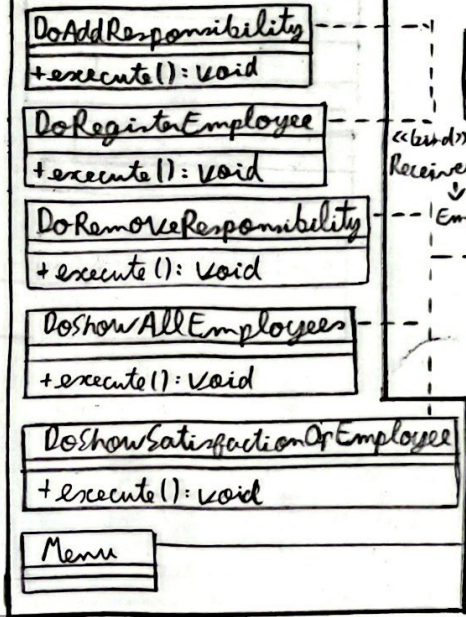 DoAddResponsibility
+execute(): void
DoRegisterEmployee
+execute(): void
«bind»
Receiver
DoRemoveResponsibility
Em
+execute(): void
DoShowAllEmployees
+execute(): void
DoShowSatisfactionOfEmployee
+execute(): void
Menu